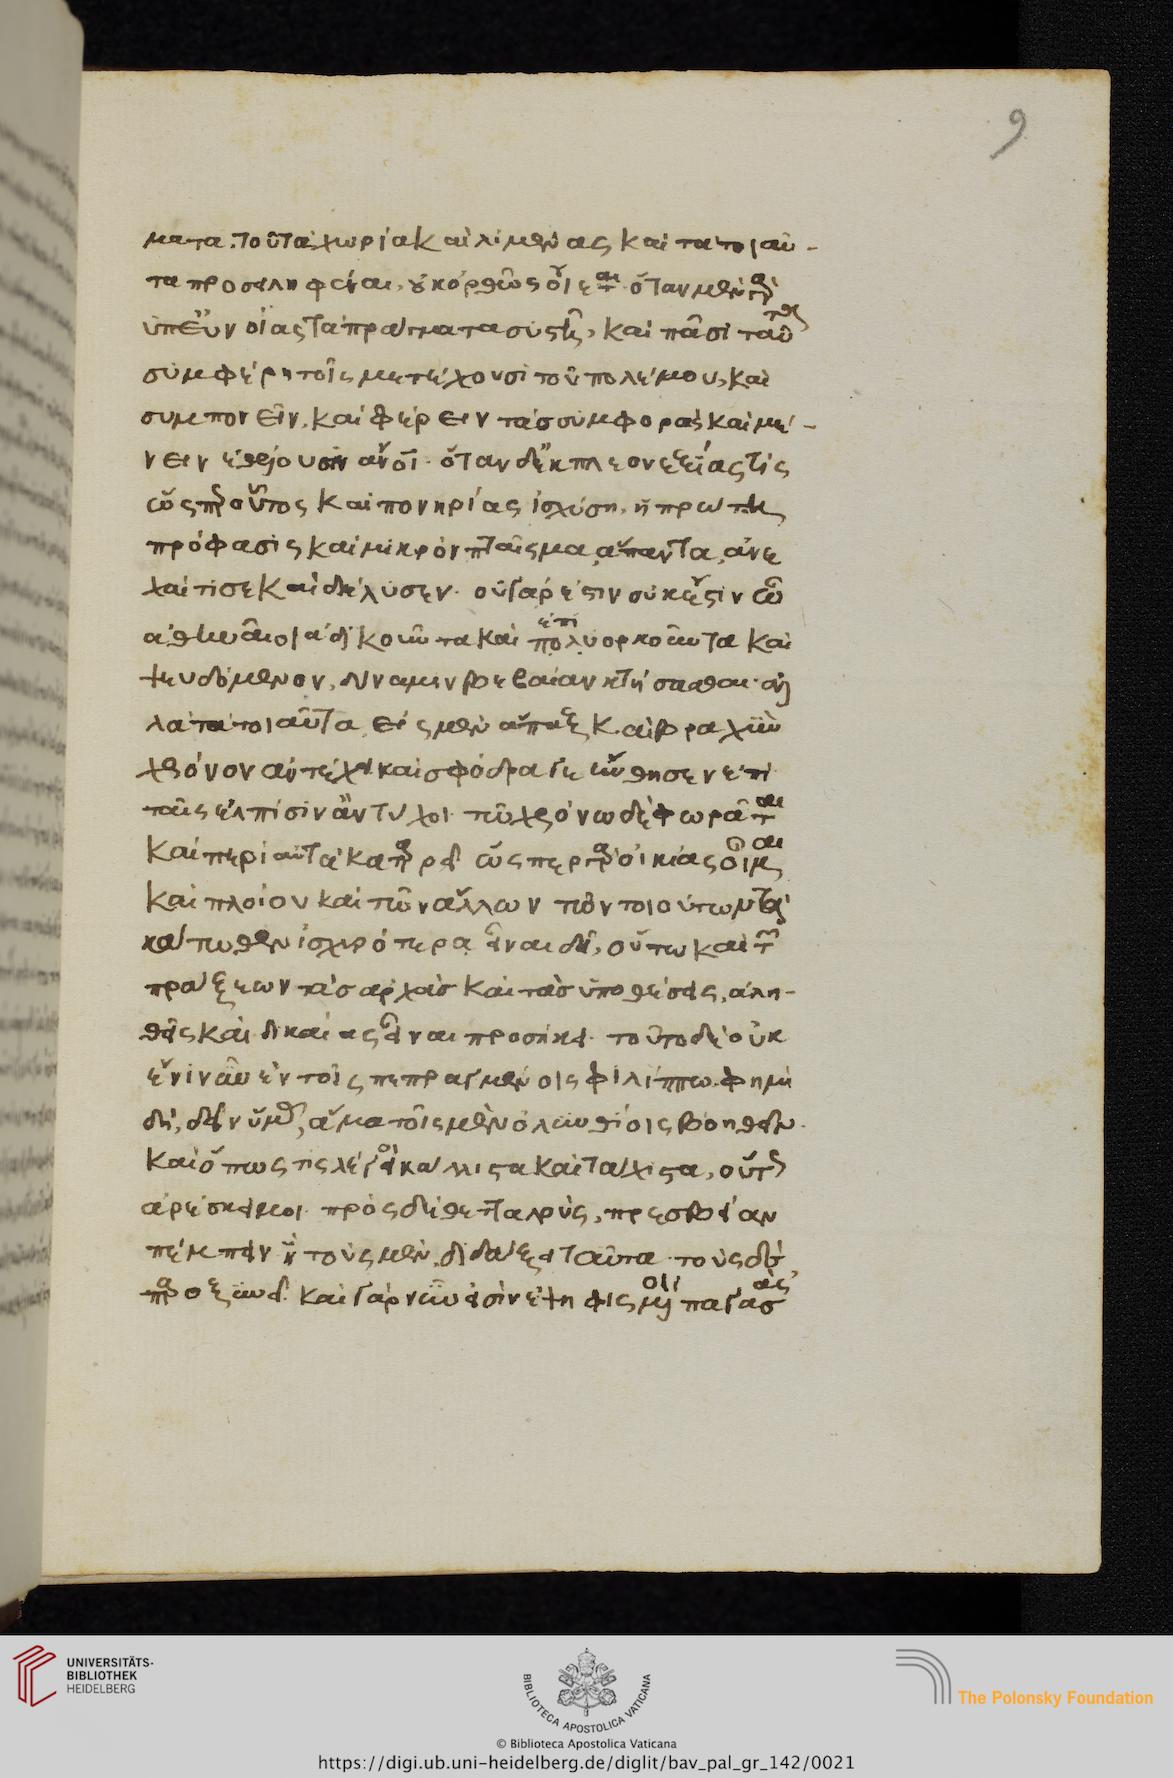 9
ματα τοῦ τὰ χωρία καὶ λιμένας καὶ τὰ τοιαῦ-
τα προσειληφέναι, οὐκ ὀρθῶς οἴεται· ὅταν μὲν γὰρ
ὑπ' εὐνοίας τὰ πράγματα συστῇ, καὶ πᾶσι ταῦτα
συμφέρῃ τοῖς μετέχουσι τοῦ πολέμου, καὶ
συμπονεῖν, καὶ φέρειν τὰς συμφορὰς καὶ μέ-
νειν ἐθέλουσιν ἄνοι· ὅταν δ' ἐκ πλεονεξίας τίς
ὥσπερ οὗτος καὶ πονηρίας ἰσχύσῃ, ἡ πρώτη
πρόφασις καὶ μικρὸν πταῖσμα ἅπαντα ἀνε
χαίτισε καὶ διέλυσεν· οὐ γάρ ἐστιν οὐκ ἔστιν ὦ
ἀθηναῖοι ἀδικοῦντα καὶ ἐπιορκοῦντα καὶ
ψευδόμενον, δύναμιν βεβαίαν κτήσασθαι· ἀλ
λὰ τὰ τοιαῦτα εἰς μὲν ἅπαξ καὶ βραχὺν
χρόνον ἀντέχει καὶ σφόδρα γε ἤνθησεν ἐπὶ
ταῖς ἐλπίσιν ἂν τύχοι· τῷ χρόνῳ δὲ φωρᾶται
καὶ περὶ αὐτὰ καταρρεῖ ὥσπερ γὰρ οἰκίας οἶμαι
καὶ πλοίου καὶ τῶν ἄλλων τῶν τοιούτων τὰ
κάτωθεν ἰσχυρότερα εἶναι δεῖ, οὕτω καὶ τῶν
πράξεων τὰς ἀρχὰς καὶ τὰς ὑποθέσεις, ἀλη-
θεῖς καὶ δικαίας εἶναι προσήκει· τοῦτο δὲ οὐκ
ἔνι νῦν ἐν τοῖς πεπραγμένοις φιλίππῳ· φημὶ
δὴ, δεῖν ὑμᾶς, ἅμα τοῖς μὲν ὀλυνθίοις βοηθεῖν·
καὶ ὅπως τις λέγει κάλλιστα καὶ τάχιστα, οὕτως
ἀρέσκει μοι· πρὸς δὲ θετταλοὺς, πρεσβείαν
πέμπειν ἣ τοὺς μὲν διδάξει ταῦτα· τοὺς δὲ
παροξυνεῖ· καὶ γὰρ νῦν εἰσὶν ἐψηφισμένοι παγασὰς
UNIVERSITÄTS-
BIBLIOTHEK
HEIDELBERG
BIBLIOTECA APOSTOLICA VATICANA
The Polonsky Foundation
© Biblioteca Apostolica Vaticana
https://digi.ub.uni-heidelberg.de/diglit/bav_pal_gr_142/0021